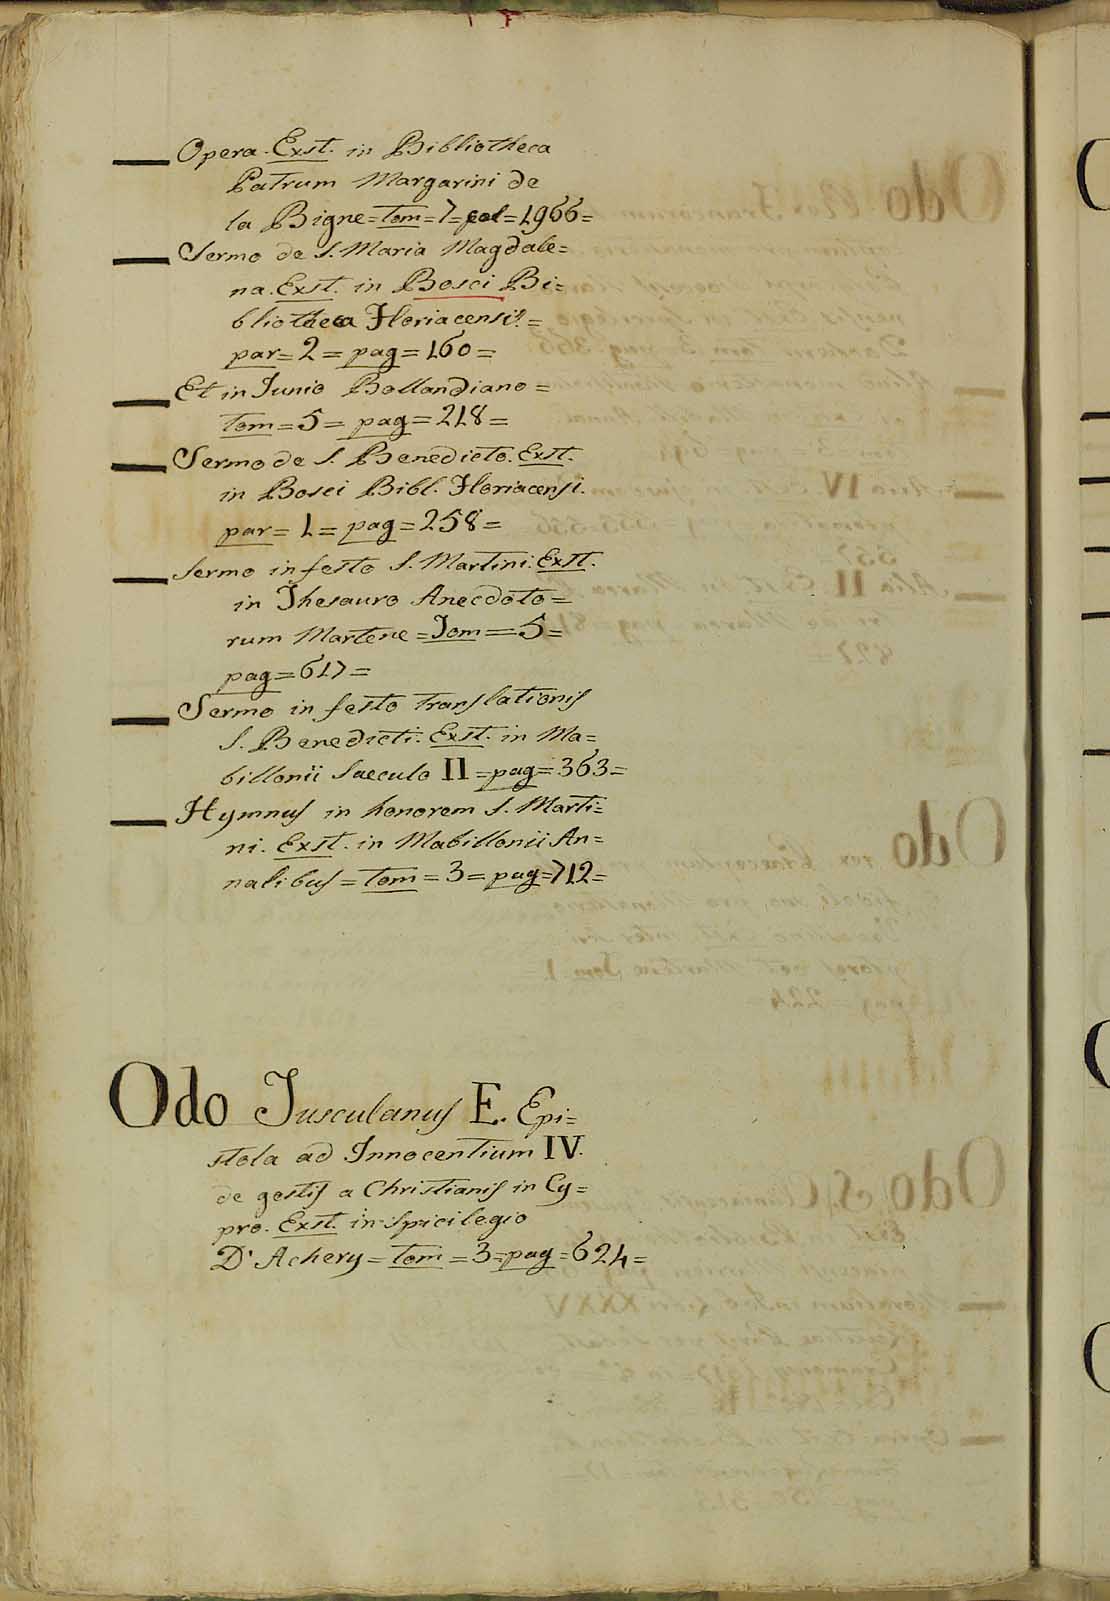 — Opera. Exst. in Bibliotheca
Patrum Margarini de
la Bigne = tom = 7 = col = 1966 =
— Sermo de S. Maria Magdale=
na. Exst. in Bosci Bi=
bliotheca Floriacensi. =
par = 2 = pag = 160 =
— Et in Junio Bollandiano =
tom = 5 = pag = 218 =
— Sermo de S. Benedicto. Exst.
in Bosci Bibl. Floriacensi.
par = 1 = pag = 258 =
— Sermo in festo S. Martini. Exst.
in Thesauro Anecdoto=
rum Martene = Tom = 5 =
pag = 617 =
— Sermo in festo translationis
S. Benedicti. Exst. in Ma=
billonii Saeculo II = pag = 363 =
— Hymnus in honorem S. Marti=
ni. Exst. in Mabillonii An=
nalibus = tom = 3 = pag = 712 =
Odo Tusculanus E. Epi=
stola ad Innocentium IV.
de gestis a Christianis in Cy=
pro. Exst. in Spicilegio
D'Achery = tom = 3 = pag = 624 =